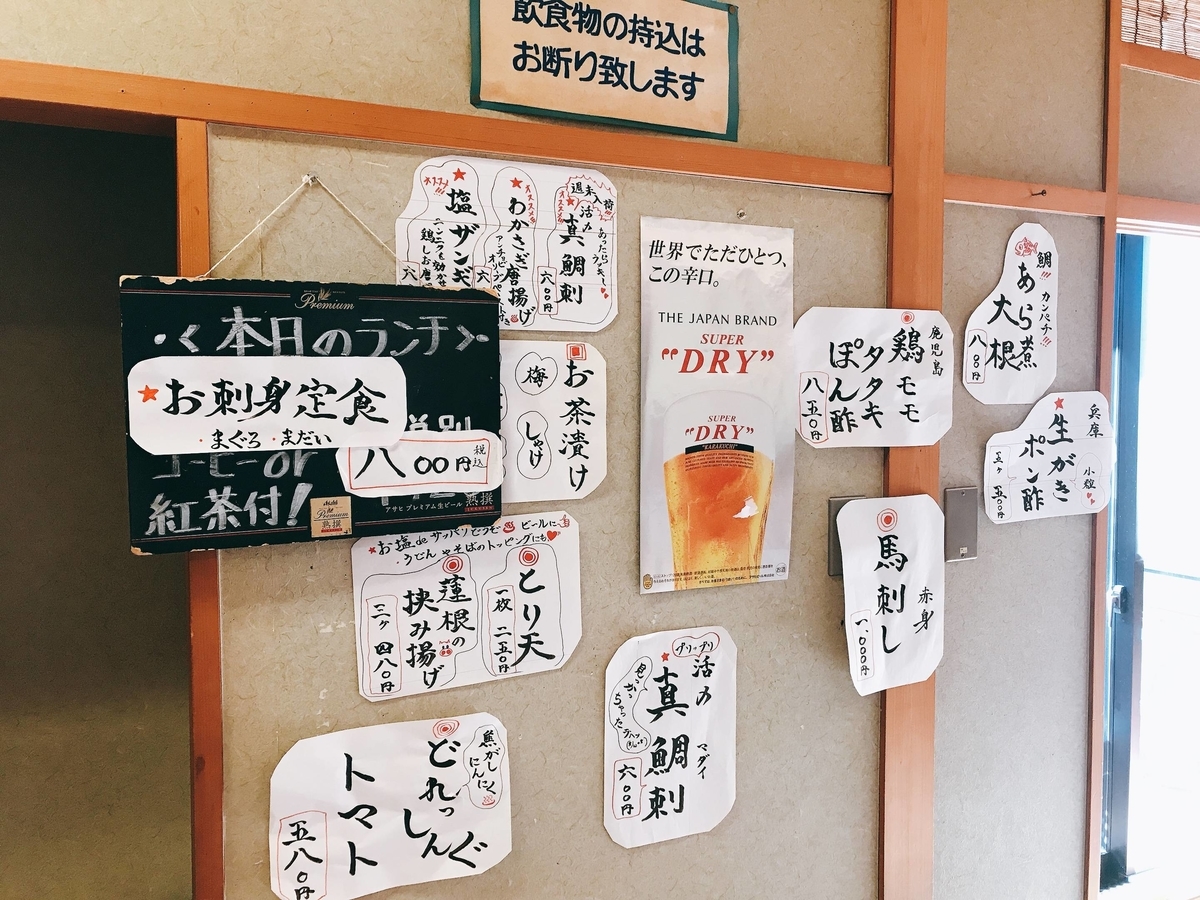 飲食物の持込は
お断り致します
オススメ!!
塩ザンギ
六
オススメ!!
わかさぎ唐揚げ
六
週末入荷!!
活〆
真鯛刺
六〇〇円
Premium
・く本日のランチ>・
お刺身定食
・まぐろ ・まだい
八〇〇円 税込
コーヒーor
紅茶付!
Asahi
Premium
熟撰
アサヒプレミアム生ビール 熟撰
お茶漬け
梅
しゃけ
お塩deサッパリどうぞ ビールに
・うどんやそばのトッピングにも
とり天
一枚 二五〇円
蓮根の
挟み揚げ
三ヶ 四八〇円
焦がし
にんにく
どれっしんぐ
トマト
五八〇円
世界でただひとつ、
この辛口。
THE JAPAN BRAND
SUPER
"DRY"
SUPER
"DRY"
"KARAKUCHI"
プリップリ
活〆 マダイ
真鯛刺
六〇〇円
鹿児島
鶏モモ
タタキ
ぽん酢
八五〇円
鯛!!
カンパチ!!!
あら煮
大根
八〇〇円
兵庫
小粒
生がき
ポン酢
五ヶ 五〇〇円
赤身
馬刺し
一、〇〇〇円